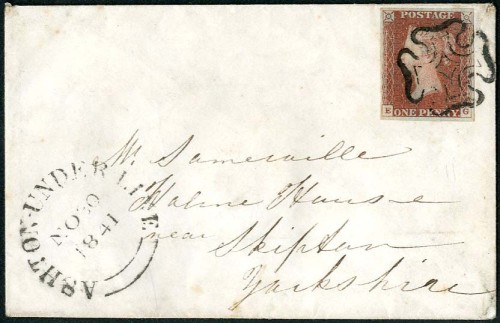 POSTAGE
ONE PENNY
E G
ASHTON-UNDER-LINE
NO 30
1841
Mr. Somerville
Holme House
near
Skipton
Yorkshire